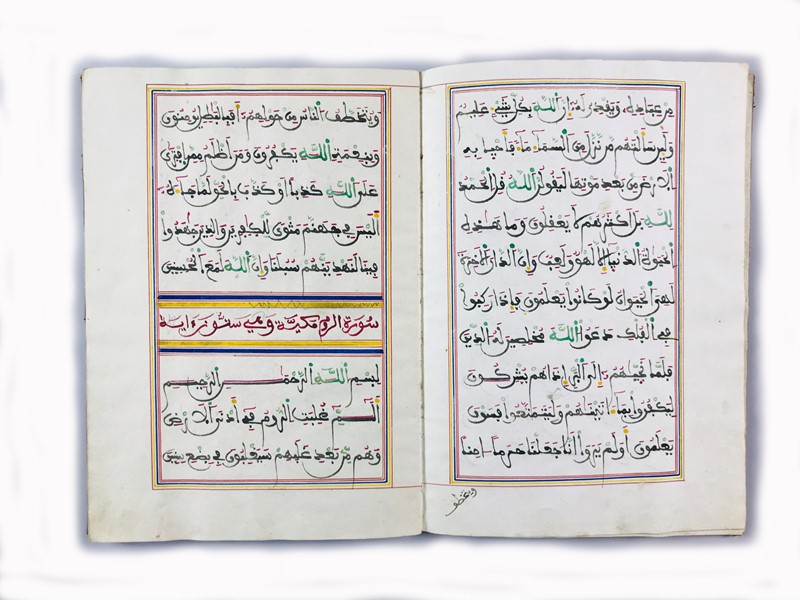 من عباده ويقدر له إن الله بكل شيء عليم
ولئن سألتهم من نزل من السماء ماء فأحيا به
الأرض من بعد موتها ليقولن الله قل الحمد
لله بل أكثرهم لا يعقلون وما هذه
الحيوة الدنيا إلا لهو ولعب وإن الدار الآخرة
لهي الحيوان لو كانوا يعلمون فإذا ركبوا
في الفلك دعوا الله مخلصين له الدين
فلما نجيهم إلى البر إذا هم يشركون
ليكفروا بما ءاتينهم وليتمتعوا فسوف
يعلمون أولم يروا أنا جعلنا حرما ءامنا
ويتخطف
ويتخطف الناس من حولهم أفبالبطل يومنون
وبنعمة الله يكفرون ومن أظلم ممن افترى
على الله كذبا أو كذب بالحق لما جاءه
أليس في جهنم مثوى للكفرين والذين جهدوا
فينا لنهدينهم سبلنا وإن الله لمع المحسنين
سورة الروم مكية وهي ستون ءاية
بسم الله الرحمن الرحيم
ألم غلبت الروم في أدنى الأرض
وهم من بعد غلبهم سيغلبون في بضع سنين